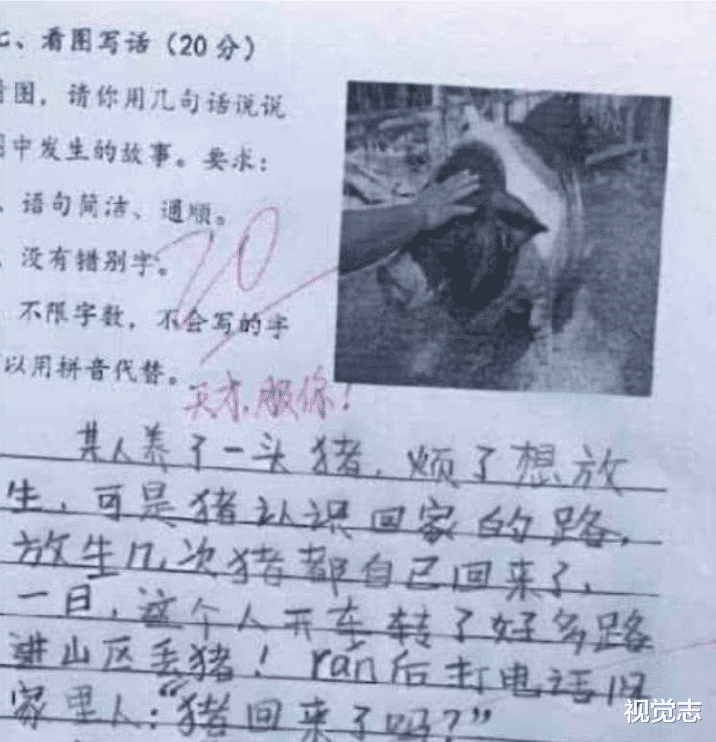 七、看图写话（20分）
看图，请你用几句话说说
图中发生的故事。要求：
、语句简洁、通顺。
、没有错别字。
、不限字数，不会写的字
可以用拼音代替。
20
天才，服你！
某人养了一头猪，烦了想放
生，可是猪认识回家的路，
放生几次猪都自己回来了，
一日，这个人开车转了好多路
进山区丢猪！rán后打电话问
家里人：“猪回来了吗？”
视觉志